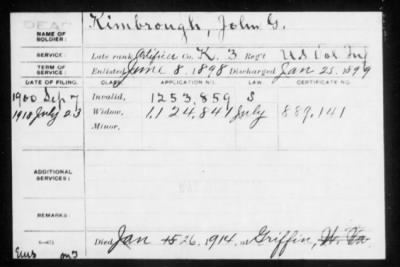 DEAD
NAME OF SOLDIER: Kimbrough, John G.
SERVICE: Late rank Artificer Co. K. 3 Reg't U S Vol Inf
TERM OF SERVICE: Enlisted June 8, 1898 Discharged Jan 25, 1899
DATE OF FILING. CLASS. APPLICATION NO. LAW. CERTIFICATE NO.
1900 Sep 7 Invalid, 1253,859 S
1918 July 23 Widow, 1,124,841 July 889,141
Minor,
ADDITIONAL SERVICES:
REMARKS:
Died Jan 15 26, 1914, at Griffin,